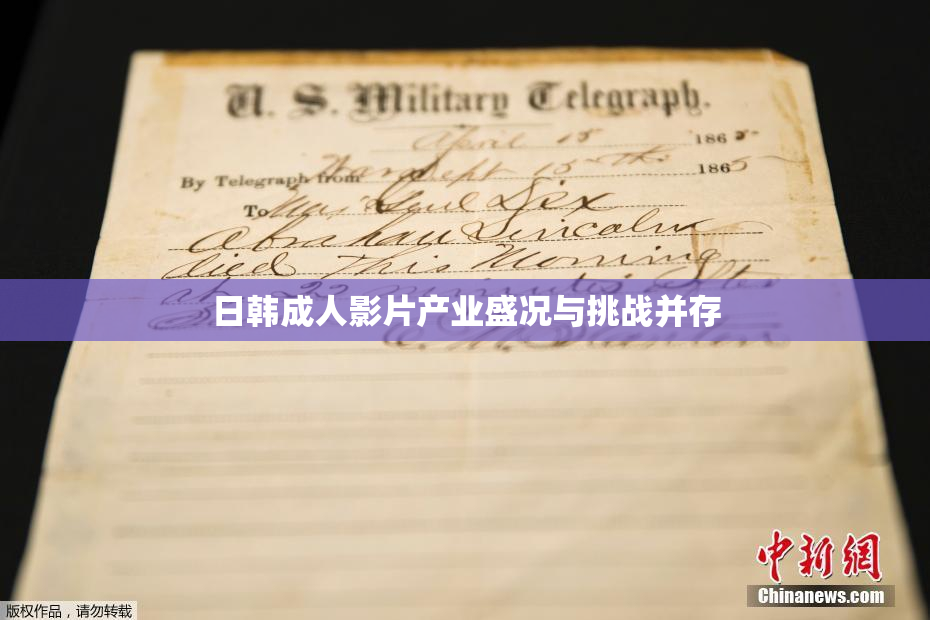 U. S. Military Telegraph.
April 15 1865
By Telegraph from War Dept 15th 1865
To Maj Genl Dix
Abraham Lincoln
died This Morning
at 22 minutes after
日韩成人影片产业盛况与挑战并存
E. M. Stanton
中新网
Chinanews.com
版权作品，请勿转载